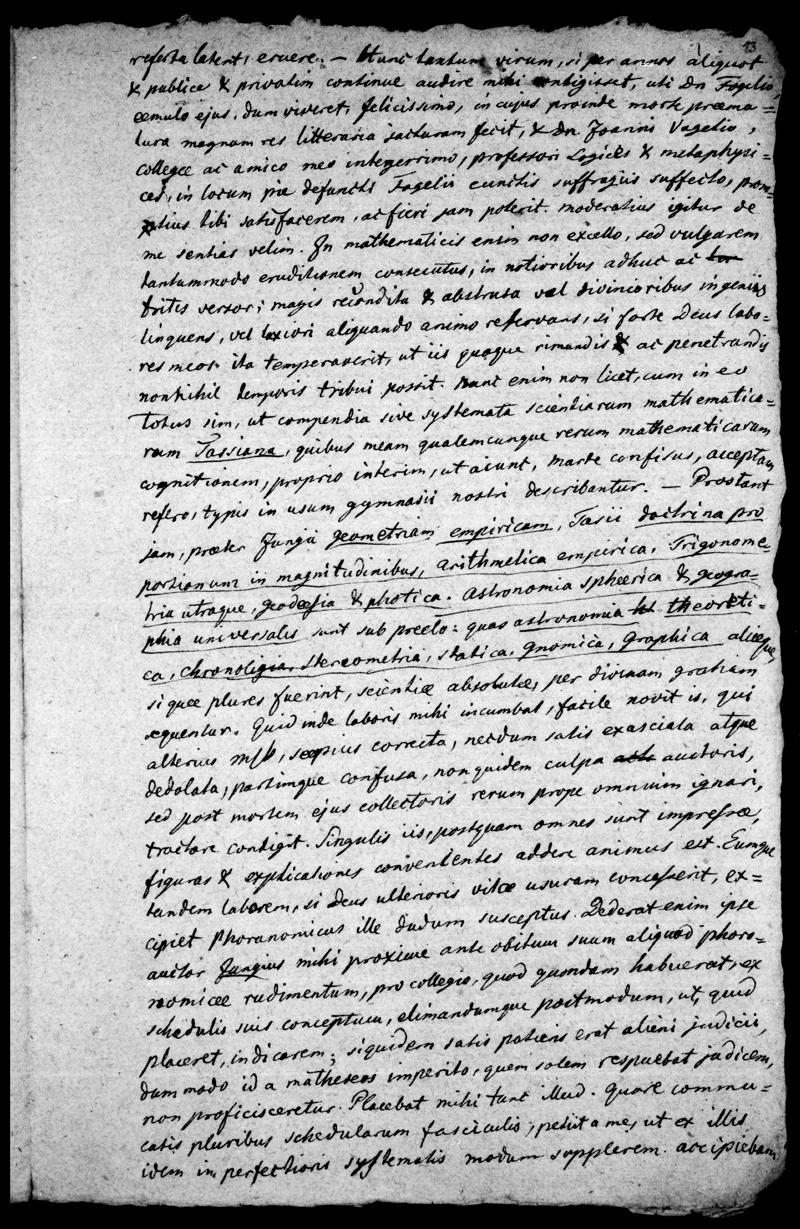 13
referta latent, eruere. — Hunc tantum virum, si per annos aliquot
& publice & privatim continue audire mihi contigisset, uti Dn Fogelio,
æmulo ejus, dum viveret, felicissimo, in cujus proinde morte præma=
tura magnum res litteraria jacturam fecit, & Dn Joanni Vagetio,
collegæ ac amico meo integerrimo, professori Logices & metaphysi=
ces, in locum pie defuncti Fogelii cunctis suffragiis suffecto, prom=
ptius tibi satisfacerem, ac fieri jam poterit. moderatius igitur de
me sentias velim. In mathematicis enim non excello, sed vulgarem
tantummodo eruditionem consecutus, in notioribus adhuc ac
tritis versor; magis recondita & abstrusa vel divinioribus ingeniis
linquens, vel laxiori aliquando animo reservans, si forte Deus labo=
res meos ita temperaverit, ut iis quoque rimandis ac penetrandis
nonnihil temporis tribui possit. Nunc enim non licet, cum in eo
totus sim, ut compendia sive systemata scientiarum mathematica=
rum Tassiana, quibus meam qualemcunque rerum mathematicarum
cognitionem, proprio interim, ut aiunt, marte confisus, acceptam
refero, typis in usum gymnasii nostri describantur. — Prostant
jam, præter Jungii geometriam empiricam, Tasii doctrina pro
portionum in magnitudinibus, arithmetica empirica, Trigonome=
tria utraque, geodæsia & photica. Astronomia sphærica & geogra=
phia universalis sunt sub prælo: quas astronomia theoreti=
ca, chronoligia, stereometria, statica, gnomica, graphica aliæque,
si quæ plures fuerint, scientiæ absolutæ, per divinam gratiam
sequentur. Quid inde laboris mihi incumbat, facile novit is, qui
alterius mss, sæpius correcta, necdum satis exasciata atque
dedolata, partimque confusa, non quidem culpa auctoris,
sed post mortem ejus collectoris rerum prope omnium ignari,
tractare contigit. Singulis iis, postquam omnes sunt impressæ,
figuras & explicationes convenientes addere animus est. Eumque
tandem laborem, si Deus ulterioris vitæ usuram concesserit, ex=
cipiet Phoranomicus ille dudum susceptus. Dederat enim ipse
auctor Jungius mihi proxime ante obitum suum aliquod phoro=
nomicæ rudimentum, pro collegio, quod quondam habuerat, ex
schedulis suis conceptum, elimandumque postmodum, ut, quid
placeret, indicarem; siquidem satis patiens erat alieni judicii,
dummodo id a matheseos imperito, quem solem respuebat judicem,
non proficisceretur. Placebat mihi tunc illud. Quare commu=
catis pluribus schedularum fasciculis, petiit a me, ut ex illis
idem in perfectioris systematis modum supplerem. accipiebam